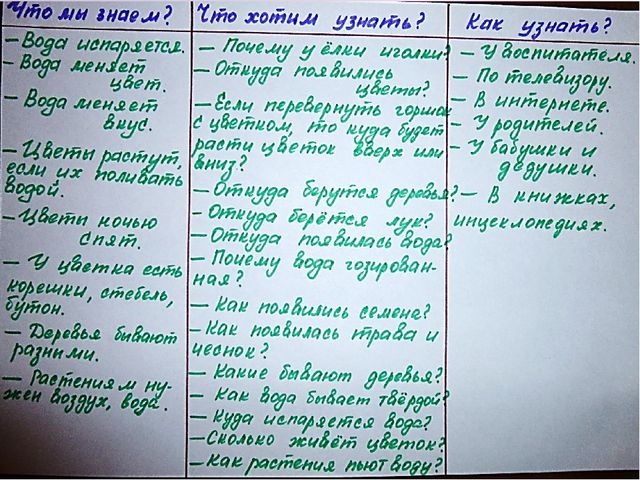 Что мы знаем?
– Вода испаряется.
– Вода меняет
цвет.
– Вода меняет
вкус.
– Цветы растут,
если их поливать
водой.
– Цветы ночью
спят.
– У цветка есть
корешки, стебель,
бутон.
– Деревья бывают
разными.
– Растениям ну-
жен воздух, вода.
Что хотим узнать?
– Почему у ёлки иголки?
– Откуда появились
цветы?
– Если перевернуть горшок
с цветком, то куда будет
расти цветок вверх или
вниз?
– Откуда берутся деревья?
– Откуда берётся лук?
– Откуда появилась вода?
– Почему вода гозирован-
ная?
– Как появились семена?
– Как появилась трава и
чеснок?
– Какие бывают деревья?
– Как вода бывает твёрдой?
– Куда испаряется вода?
– Сколько живёт цветок?
– Как растения пьют воду?
Как узнать?
– У воспитателя.
– По телевизору.
– В интернете.
– У родителей.
– У бабушки и
дедушки.
– В книжках,
инциклопедиях.